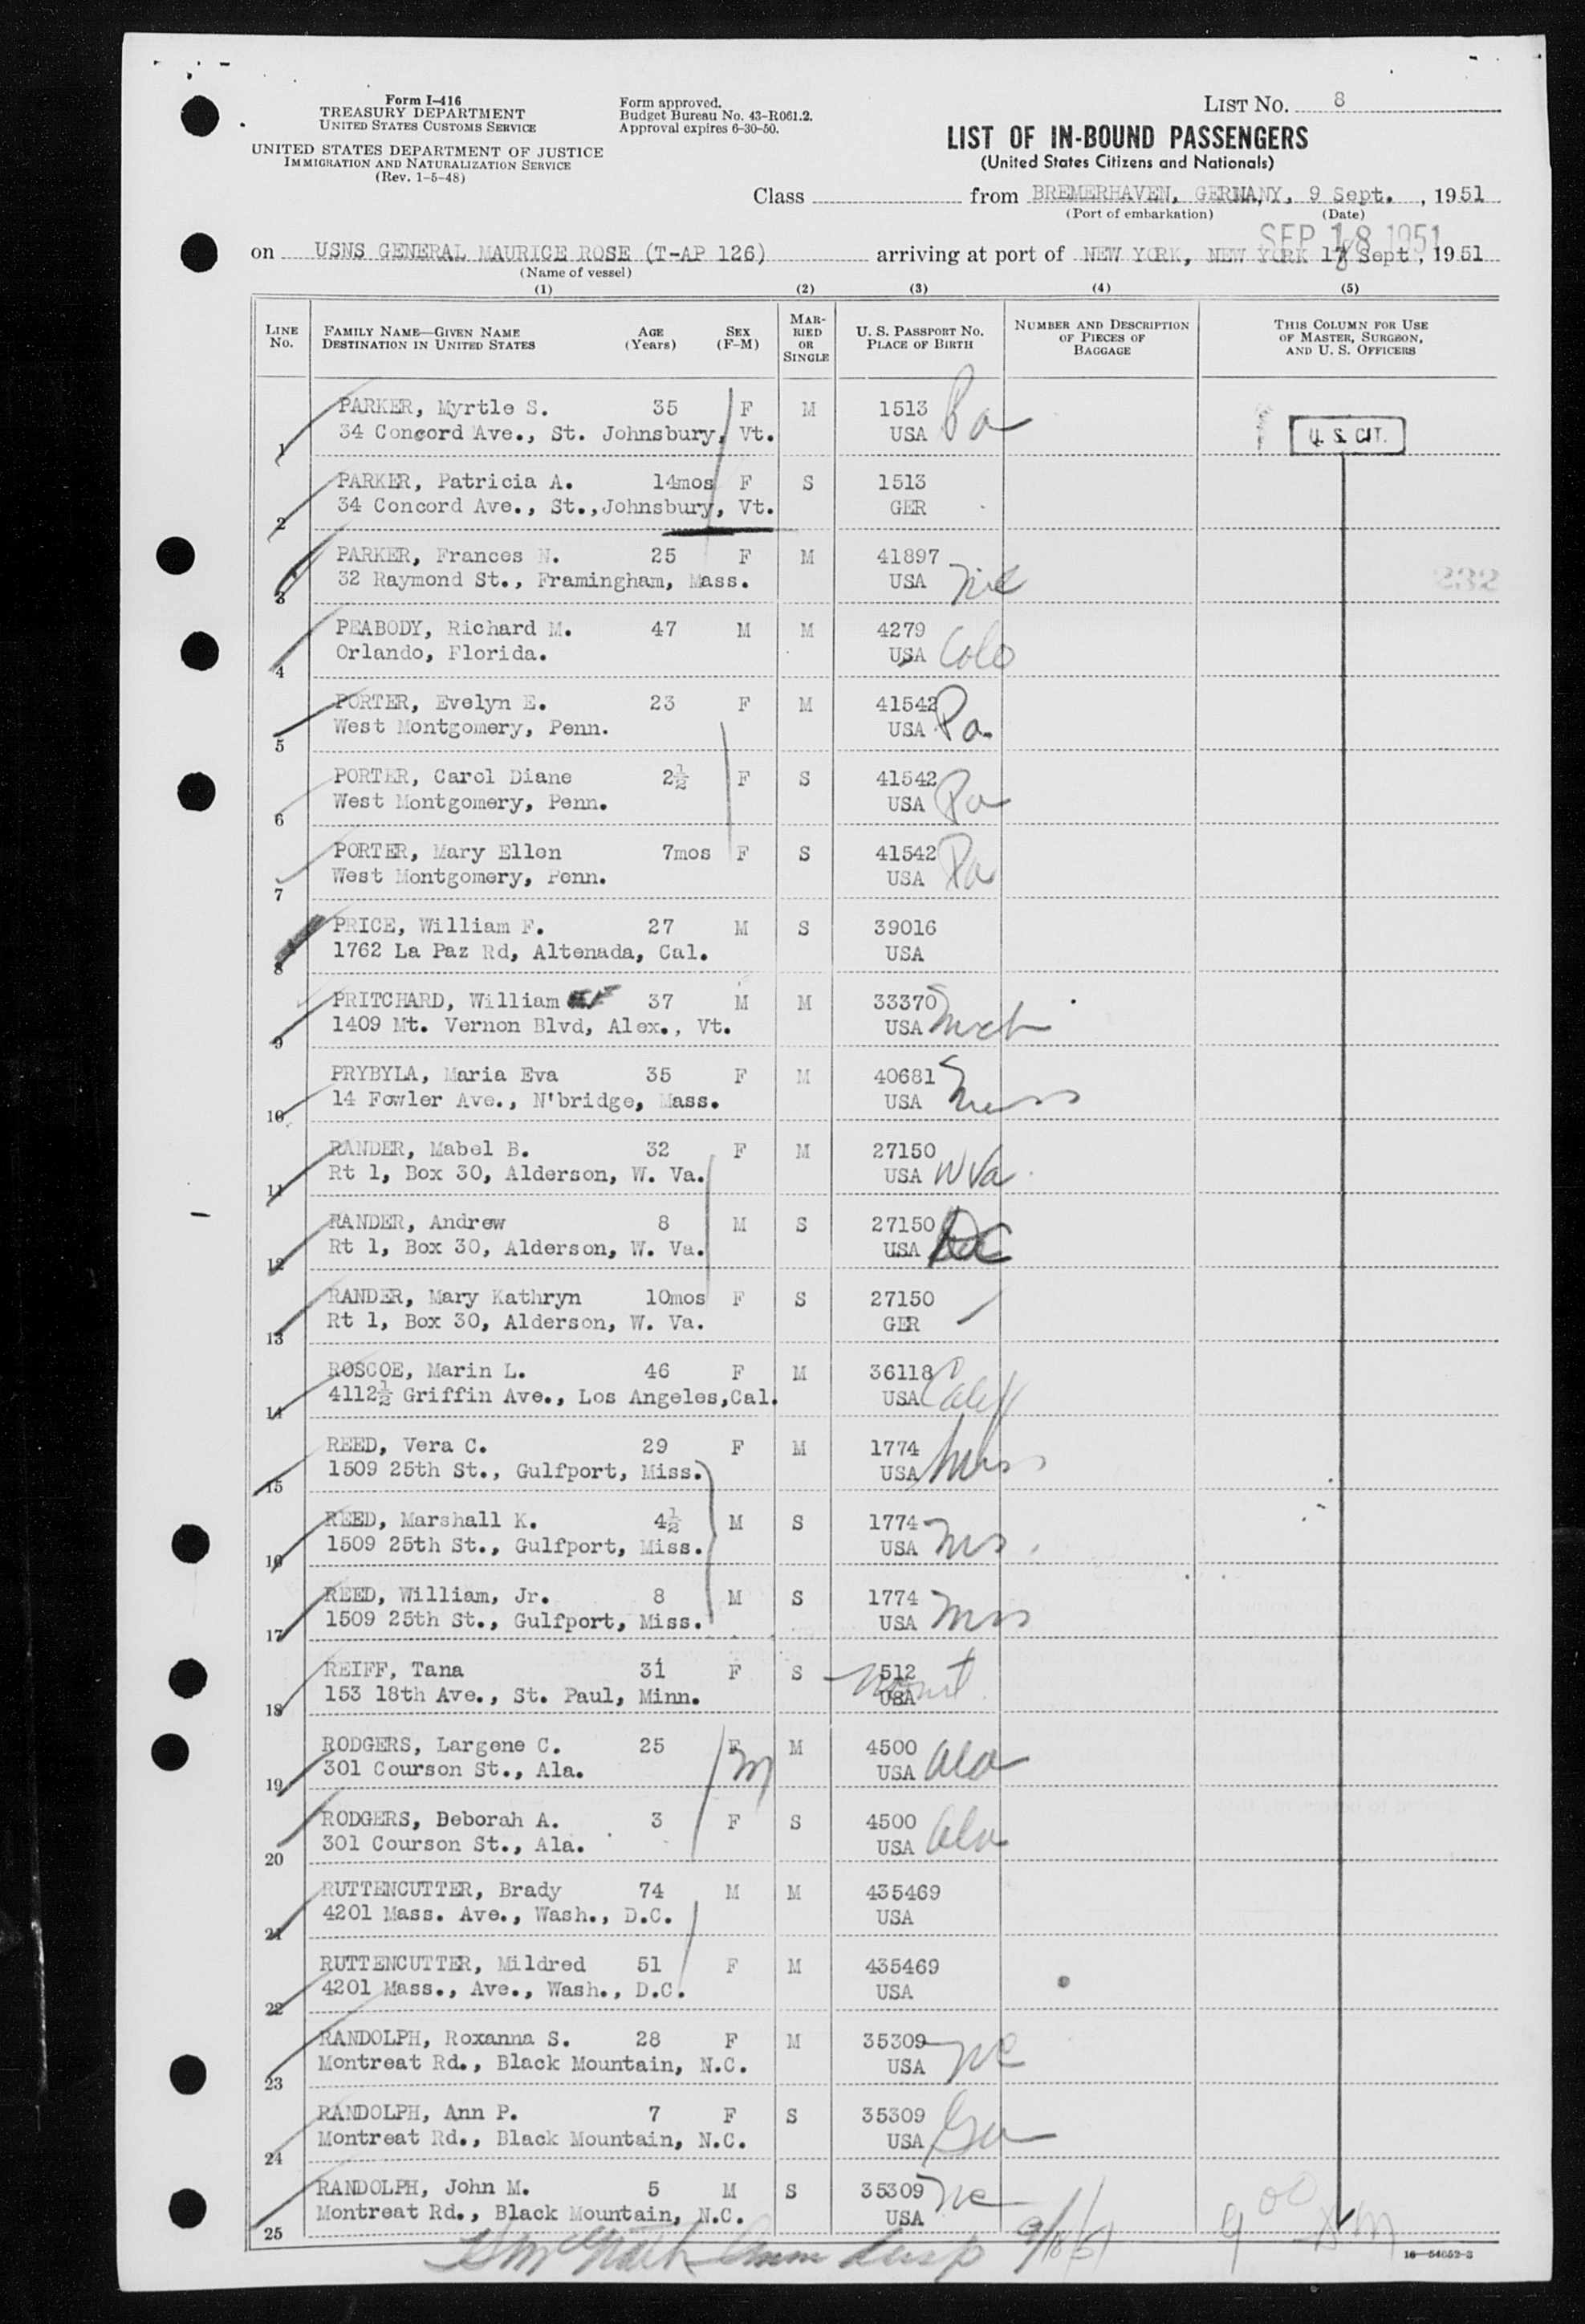 Form I-416
TREASURY DEPARTMENT
UNITED STATES CUSTOMS SERVICE
UNITED STATES DEPARTMENT OF JUSTICE
IMMIGRATION AND NATURALIZATION SERVICE
(Rev. 1-5-48)
Form approved.
Budget Bureau No. 43-R061.2.
Approval expires 6-30-50.
LIST NO. 8
LIST OF IN-BOUND PASSENGERS
(United States Citizens and Nationals)
Class from BREMERHAVEN, GERMANY, 9 Sept. , 1951
(Port of embarkation) (Date)
SEP 18 1951
on USNS GENERAL MAURICE ROSE (T-AP 126) arriving at port of NEW YORK, NEW YORK 17 Sept , 1951
(Name of vessel)
(1) (2) (3) (4) (5)
LINE NO. FAMILY NAME—GIVEN NAME DESTINATION IN UNITED STATES AGE (Years) SEX (F-M) MARRIED OR SINGLE U. S. PASSPORT NO. PLACE OF BIRTH NUMBER AND DESCRIPTION OF PIECES OF BAGGAGE THIS COLUMN FOR USE OF MASTER, SURGEON, AND U. S. OFFICERS
PARKER, Myrtle S. 35 F M 1513
1 34 Concord Ave., St. Johnsbury, Vt. USA Pa U. S. CIT.
PARKER, Patricia A. 14mos F S 1513
2 34 Concord Ave., St.,Johnsbury, Vt. GER
PARKER, Frances N. 25 F M 41897
3 32 Raymond St., Framingham, Mass. USA 232
PEABODY, Richard M. 47 M M 4279
4 Orlando, Florida. USA Colo
PORTER, Evelyn E. 23 F M 41542
5 West Montgomery, Penn. USA Pa.
PORTER, Carol Diane 2½ F S 41542
6 West Montgomery, Penn. USA Pa
PORTER, Mary Ellen 7mos F S 41542
7 West Montgomery, Penn. USA Pa
PRICE, William F. 27 M S 39016
8 1762 La Paz Rd, Altenada, Cal. USA
PRITCHARD, William 37 M M 33370
9 1409 Mt. Vernon Blvd, Alex., Vt. USA Mich
PRYBYLA, Maria Eva 35 F M 40681
10 14 Fowler Ave., N'bridge, Mass. USA Mass
RANDER, Mabel B. 32 F M 27150
11 Rt 1, Box 30, Alderson, W. Va. USA W Va
RANDER, Andrew 8 M S 27150
12 Rt 1, Box 30, Alderson, W. Va. USA DC
RANDER, Mary Kathryn 10mos F S 27150
13 Rt 1, Box 30, Alderson, W. Va. GER
ROSCOE, Marin L. 46 F M 36118
14 4112½ Griffin Ave., Los Angeles,Cal. USA Calif
REED, Vera C. 29 F M 1774
15 1509 25th St., Gulfport, Miss. USA Miss
REED, Marshall K. 4½ M S 1774
16 1509 25th St., Gulfport, Miss. USA
REED, William, Jr. 8 M S 1774
17 1509 25th St., Gulfport, Miss. USA
REIFF, Tana 31 F S 512
18 153 18th Ave., St. Paul, Minn. USA
RODGERS, Largene C. 25 F M 4500
19 301 Courson St., Ala. M USA Ala
RODGERS, Deborah A. 3 F S 4500
20 301 Courson St., Ala. USA Ala
RUTTENCUTTER, Brady 74 M M 435469
21 4201 Mass. Ave., Wash., D.C. USA
RUTTENCUTTER, Mildred 51 F M 435469
22 4201 Mass., Ave., Wash., D.C. USA
RANDOLPH, Roxanna S. 28 F M 35309
23 Montreat Rd., Black Mountain, N.C. USA NC
RANDOLPH, Ann P. 7 F S 35309
24 Montreat Rd., Black Mountain, N.C. USA Ga
RANDOLPH, John M. 5 M S 35309
25 Montreat Rd., Black Mountain, N.C. USA NC
9/18/51 9 00 AM
16—54052-3